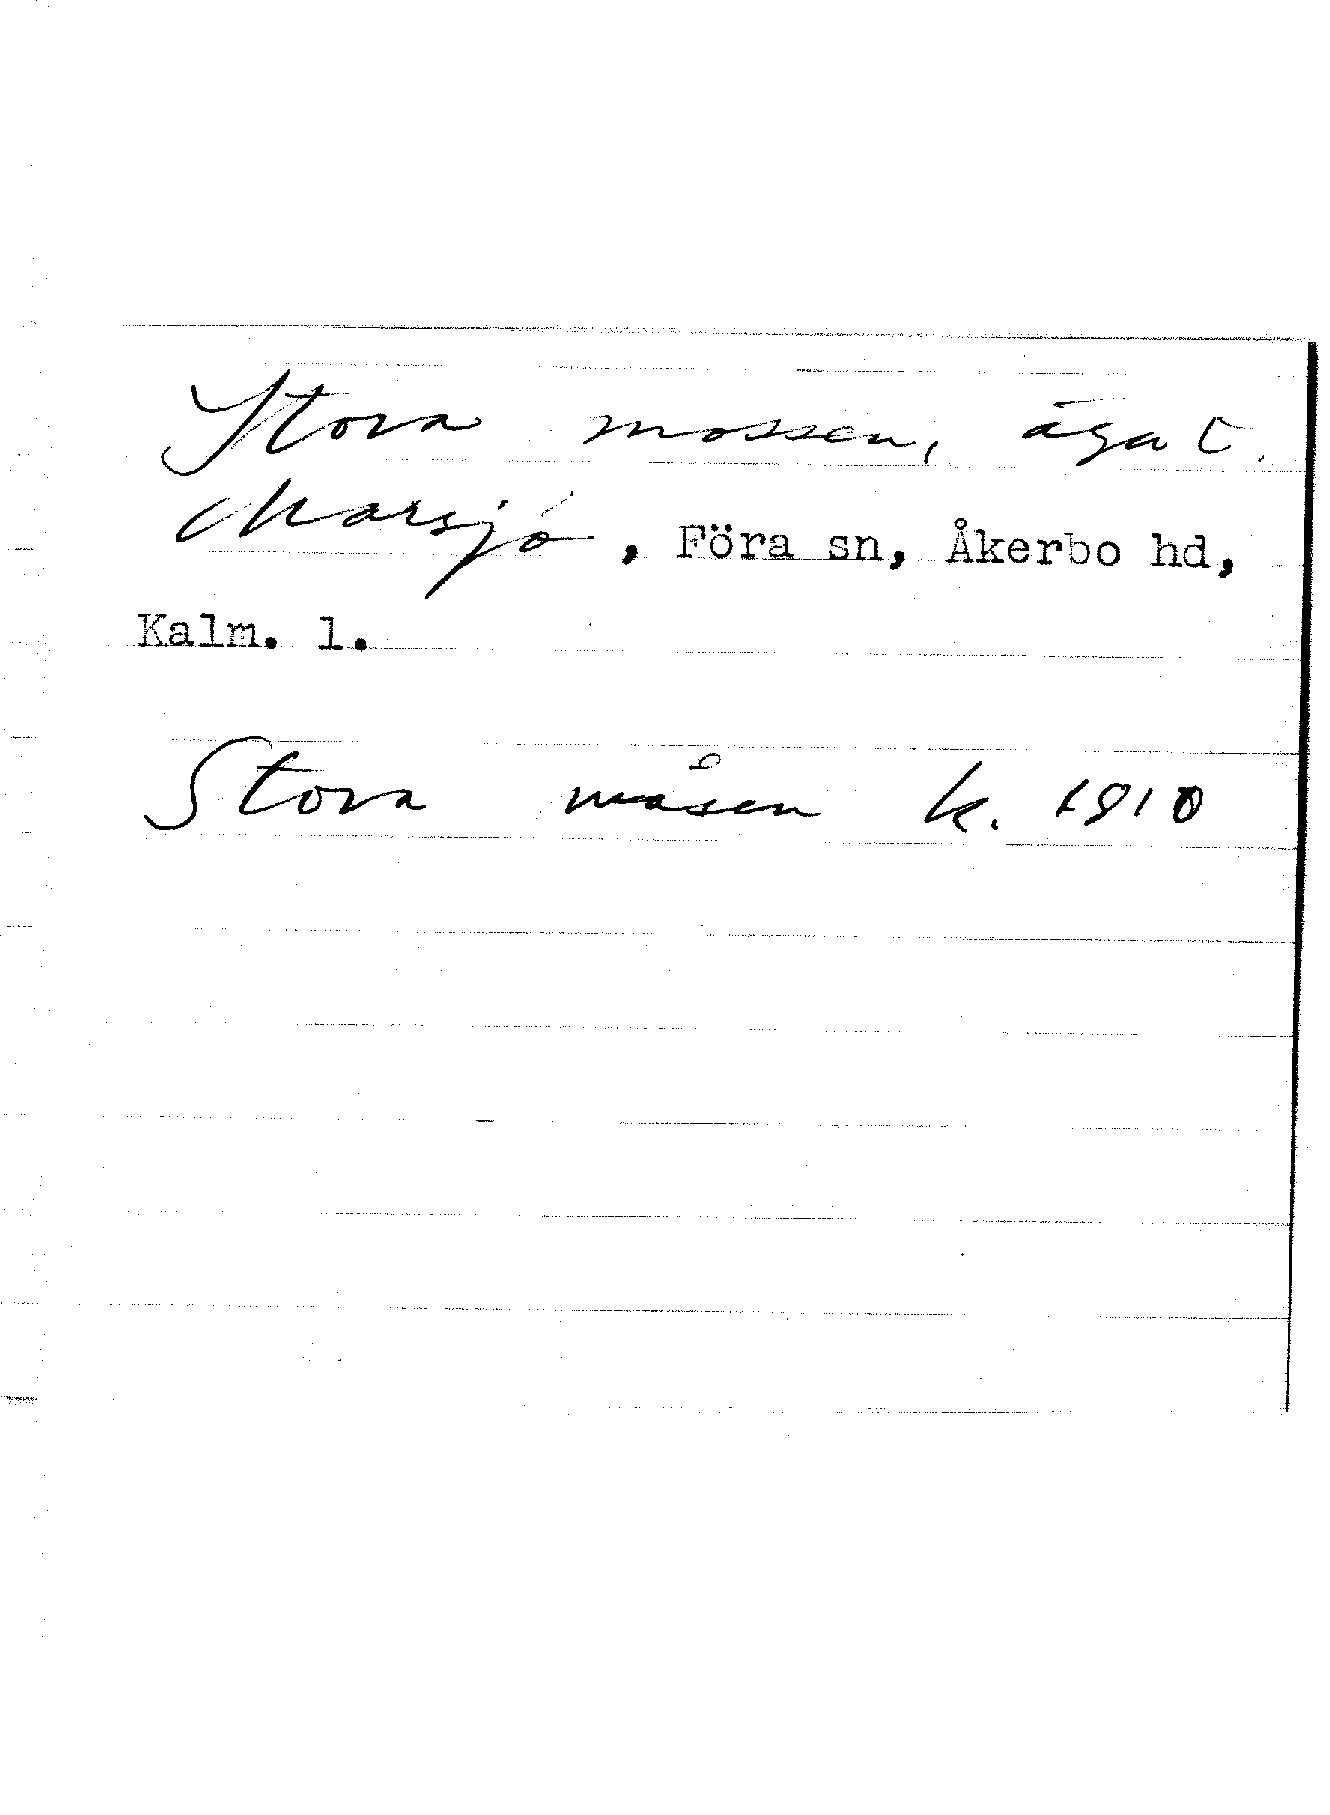 Stora mossen, ägat.
Marsjö, Föra sn, Åkerbo hd,
Kalm. l.
Stora måsen k. 1910